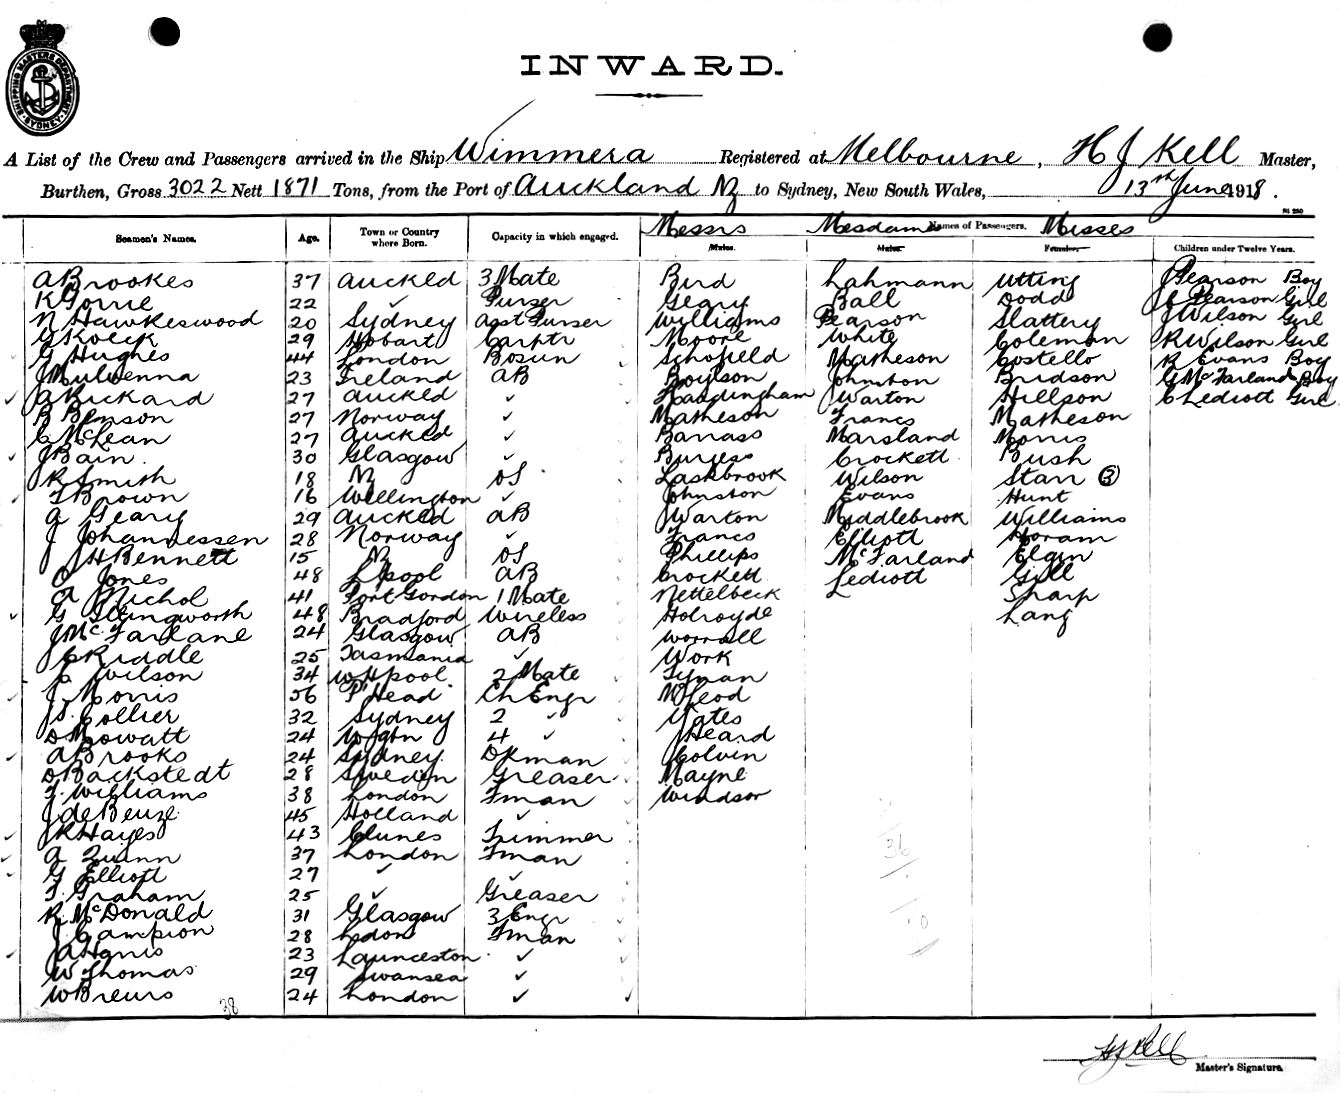 SHIPPING MASTERS DEPARTMENT SYDNEY
INWARD.
A List of the Crew and Passengers arrived in the Ship Wimmera Registered at Melbourne, H J Kell Master,
Burthen, Gross 3022 Nett 1871 Tons, from the Port of Auckland NZ to Sydney, New South Wales, 13th June 1918.
Messrs Mesdames Names of Passengers. Misses
Seamen's Names. Age. Town or Country where Born. Capacity in which engaged. Males. Males. Females. Children under Twelve Years.
A Brookes 37 Auckld 3 Mate Bird Lahmann Utting J Pearson Boy
K Gorrie 22 ✓ Purser Geary Ball Dodd C Pearson Girl
N Hawkeswood 20 Sydney Asst Purser Williams Pearson Slattery J Wilson Girl
G Koeck 29 Hobart Carptr Moore White Coleman R Wilson Girl
G Hughes 44 London Bosun Schofield Matheson Costello R Evans Boy
J Mulvenna 23 Ireland AB Boylson Johnston Bridson G McFarland Boy
A Rickard 27 Auckld ✓ Hardingham Warton Hillson C Lediott Girl
B Benson 27 Norway ✓ Matheson Francs Matheson
C McLean 27 Auckld ✓ Barrass Marsland Morris
J Bain 30 Glasgow ✓ Burgess Crockett Bush
R Smith 18 NZ OS Lashbrook Wilson Starr (3)
F Brown 16 Wellington ✓ Johnston Evans Hunt
A Geary 29 Auckld AB Warton Middlebrook Williams
J Johannessen 28 Norway ✓ Francs Elliott Horam
J H Bennett 15 NZ OS Phillips McFarland Elgin
C Jones 48 L'pool AB Crockett Lediott Gill
A Nichol 41 Port Gordon 1 Mate Nettelbeck Sharp
G Illingworth 48 Bradford Wireless Holroyde Lang
J McFarlane 24 Glasgow AB Worrall
C Riddle 25 Tasmania ✓ Work
C Wilson 34 W Hpool 2 Mate Lyman
J Morris 56 P'Head Ch Engr McLeod
J S Collier 32 Sydney 2 ✓ Yates
D Mowatt 24 Wigtn 4 ✓ Heard
A Brooks 24 Sydney Dkman Colvin
D Backstedt 28 Sweden Greaser Mayne
F Williams 38 London Fman Windsor
J de Beuze 45 Holland ✓
J R Hayes 43 Clunes Trimmer
A Quinn 37 London Fman
G Elliott 27 ✓ ✓
F Graham 25 ✓ Greaser
R McDonald 31 Glasgow 3 Engr
J Campion 28 Lodon Fman
J A Harris 23 Launceston ✓
W Thomas 29 Swansea ✓
W Breurs 24 London ✓
38
36
H J Kell
Master's Signature.